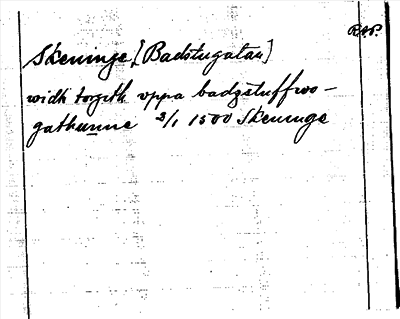 RAP.
Skeninge, [Badstugatan]
widh torgith vppa badzstuffwo-
gathunne 3/1 1500 Skeninge